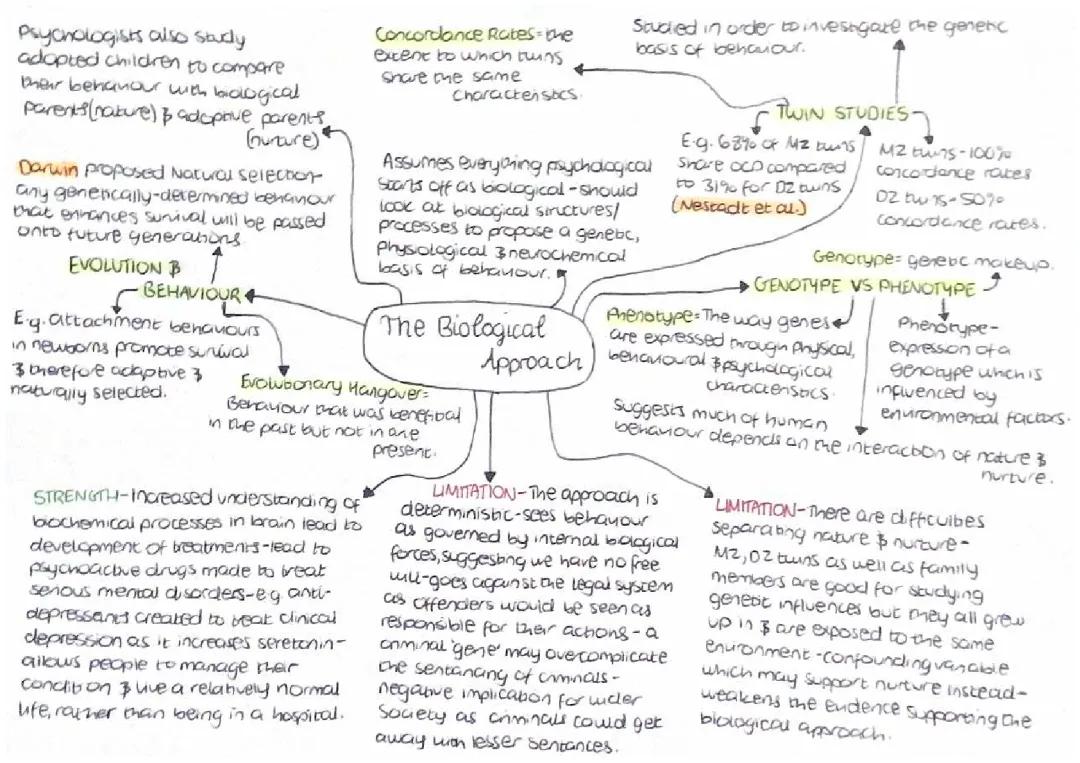 Psychologists also study
adopted children to compare
their behaviour with biological
parents (nature) & adoptive parents
(nurture)
Concordance Rates = the
extent to which twins
share the same
characteristics.
Studied in order to investigate the genetic
basis of behaviour.
TWIN STUDIES
E.g. 68% of MZ twins
share OCD compared
to 31% for DZ twins
(Nestadt et al.)
MZ twins - 100%
concordance rates
DZ twins - 50%
concordance rates.
Darwin proposed Natural selection -
any genetically-determined behaviour
that enhances survival will be passed
onto future generations.
Assumes everything psychological
starts off as biological - should
look at biological structures/
processes to propose a genetic,
physiological & neurochemical
basis of behaviour.
EVOLUTION &
BEHAVIOUR
E.g. attachment behaviours
in newborns promote survival
& therefore adaptive &
naturally selected.
Evolutionary Hangover =
Behaviour that was benefitial
in the past but not in the
present.
The Biological
Approach
Genotype = genetic makeup.
GENOTYPE VS PHENOTYPE
Phenotype = The way genes
are expressed through physical,
behavioural & psychological
characteristics.
Phenotype -
expression of a
genotype which is
influenced by
environmental factors.
Suggests much of human
behaviour depends on the interaction of nature &
nurture.
STRENGTH - Increased understanding of
biochemical processes in brain lead to
development of treatments - lead to
psychoactive drugs made to treat
serious mental disorders - e.g. anti-
depressants created to treat clinical
depression as it increases seretonin -
allows people to manage their
condition & live a relatively normal
life, rather than being in a hospital.
LIMITATION - The approach is
deterministic - sees behaviour
as governed by internal biological
forces, suggesting we have no free
will - goes against the legal system
as offenders would be seen as
responsible for their actions - a
criminal 'gene' may overcomplicate
the sentancing of criminals -
negative implication for wider
society as criminals could get
away with lesser sentances.
LIMITATION - There are difficulties
separating nature & nurture -
MZ, DZ twins as well as family
members are good for studying
genetic influences but they all grew
up in & are exposed to the same
environment - confounding variable
which may support nurture instead -
weakens the evidence supporting the
biological approach.